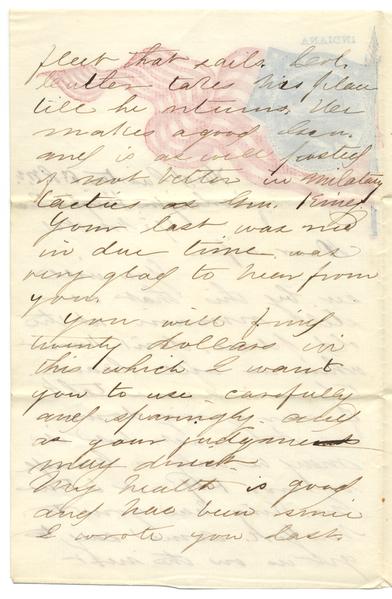 INDIANA
fleet that sails. Col.
takes his place
till he returns. He
makes a good Gen.
and is as well posted
if not better in military
tactics as Gen.
Your last was rec
in due time was
very glad to hear from
you.
You will find
twenty dollars in
this which I want
you to use carefully
and sparingly and
as your judgment
may direct.
My health is good
and has been since
I wrote you last.